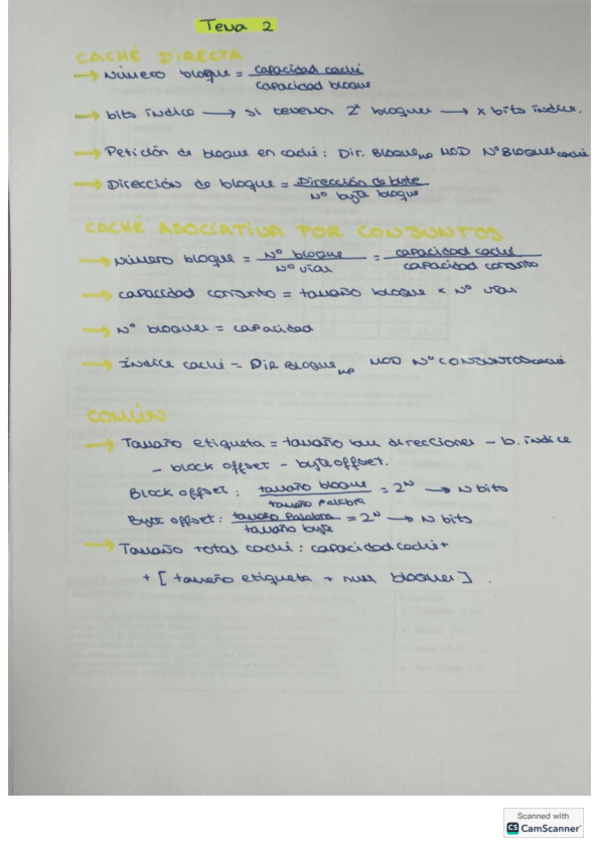 Tema 2
CACHÉ DIRECTA
→ Número bloque = capacidad caché / capacidad bloque
→ bits índice → si tenemos 2ˣ bloques → x bits índice.
→ Petición de bloque en caché: Dir. Bloque MP MOD Nº Bloques caché
→ Dirección de bloque = Dirección de byte / Nº byte bloque
CACHÉ ASOCIATIVA POR CONJUNTOS
→ Número bloque = Nº bloque / Nº vías = capacidad caché / capacidad conjunto
→ capacidad conjunto = tamaño bloque × Nº vías
→ Nº bloques = capacidad
→ Índice caché = Dir Bloque MP MOD Nº CONJUNTOS caché
COMÚN
→ Tamaño etiqueta = tamaño bus direcciones - b. índice
- block offset - byte offset.
Block offset: tamaño bloque / tamaño palabra = 2ᴺ → N bits
Byte offset: tamaño palabra / tamaño byte = 2ᴺ → N bits
→ Tamaño total caché: capacidad caché +
+ [tamaño etiqueta * num bloques].
Scanned with
CS CamScanner